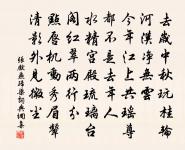 去歲中秋玩桂輪
河漢淨無雲
今年江上共瑤尊
都不是去年人
水精宮殿琉璃臺
閣紅翠兩行分
點唇機動秀眉顰
清影外見微塵
燕歸梁詞